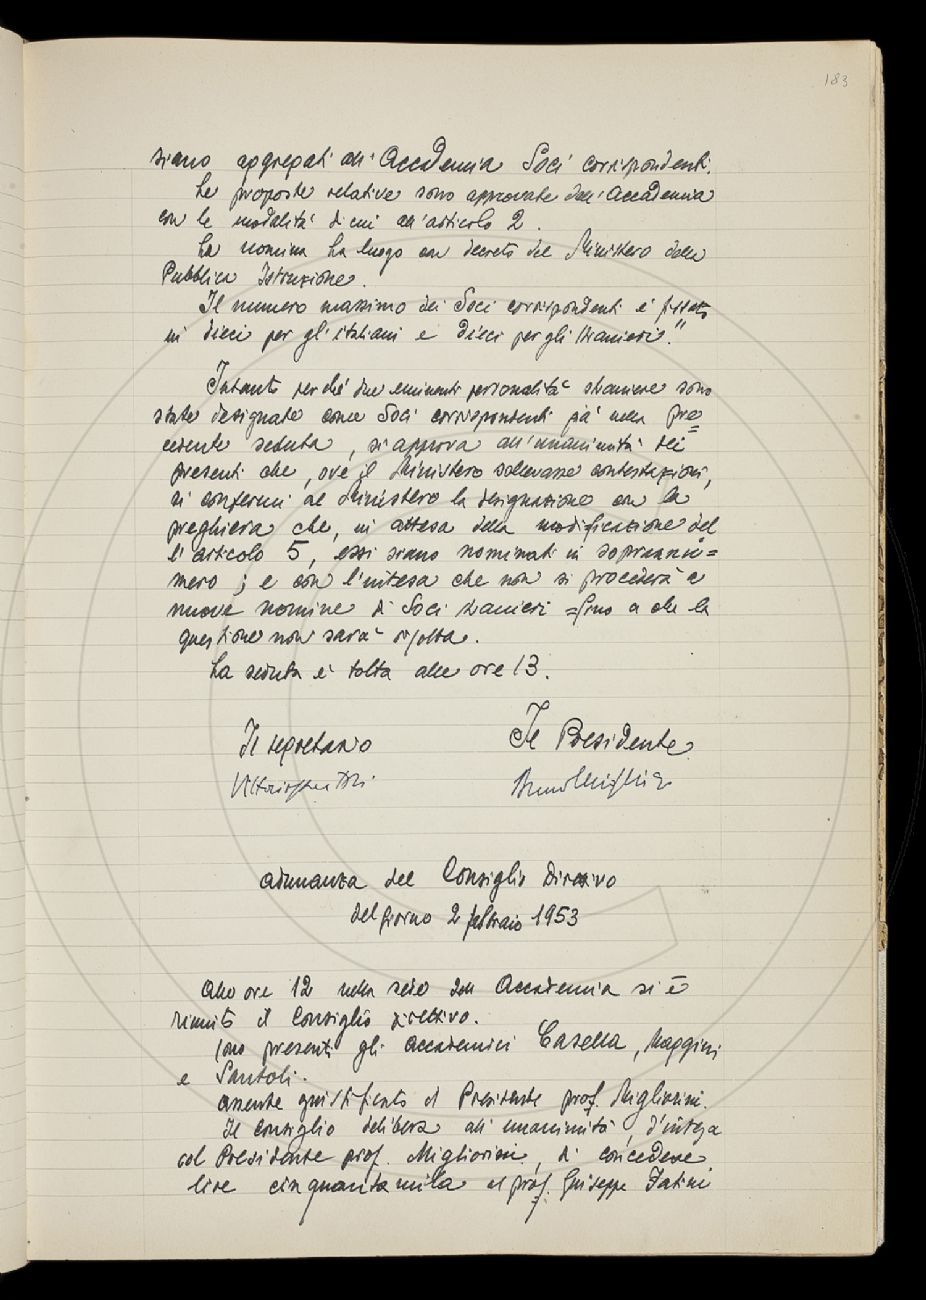 183
siano aggregati all'Accademia Soci corrispondenti.
Le proposte relative sono approvate dall'Accademia
con le modalità di cui all'articolo 2.
La nomina ha luogo con decreto del Ministero della
Pubblica Istruzione.
Il numero massimo dei Soci corrispondenti è fissato
in dieci per gl'italiani e dieci per gli stranieri."
Intanto perché due eminenti personalità straniere sono
state designate come Soci corrispondenti già nella pre=
cedente seduta, si approva all'unanimità dei
presenti che, ove il Ministero sollevasse contestazioni,
si confermi al Ministero la designazione con la
preghiera che, in attesa della modificazione del
l'articolo 5, essi siano nominati in soprannu=
mero; e con l'intesa che non si procederà a
nuove nomine di Soci stranieri fino a che la
questione non sarà risolta.
La seduta è tolta alle ore 13.
Il segretario
Il Presidente
Bruno Migliorini
adunanza del Consiglio direttivo
del giorno 2 febbraio 1953
Alle ore 12 nella sede dell'Accademia si è
riunito il Consiglio direttivo.
Sono presenti gli accademici Casella, Maggini
e Santoli.
assente giustificato il Presidente prof. Migliorini.
Il Consiglio delibera all'unanimità, d'intesa
col Presidente prof. Migliorini, di concedere
lire cinquantamila al prof. Giuseppe Fatini